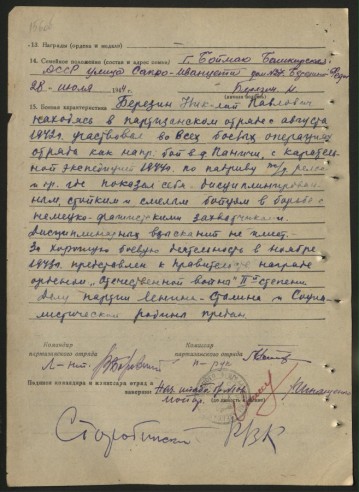 13. Награды (ордена и медали)
14. Семейное положение (состав и адрес семьи) г. Баймак Башкирской
АССР улица
28 июля 1944 г. Березин Н.
15. Боевая характеристика Березин Николай Павлович
находясь в партизанском отряде с августа
1942 г. участвовал во всех боевых операциях
отряда как напр. бой в д. с каратель-
ной экспедицией 1944 г. по подрыву ж/д рельс
и др. где показал себя дисциплинирован-
ным, стойким и смелым бойцом в борьбе с
немецко-фашистскими захватчиками.
Дисциплинарных взысканий не имеет.
За хорошую боевую деятельность в ноябре
1943 г. представлен к правительств. награде
орденом "Отечественной войны" II степени
Делу партии Ленина-Сталина и Социа-
листической родине предан
Командир
партизанского отряда
Л-нт.
Комиссар
партизанского отряда
к-н
Подписи командира и комиссара отряда
заверяю: Нач. штаба
майор
Старобинский РВК